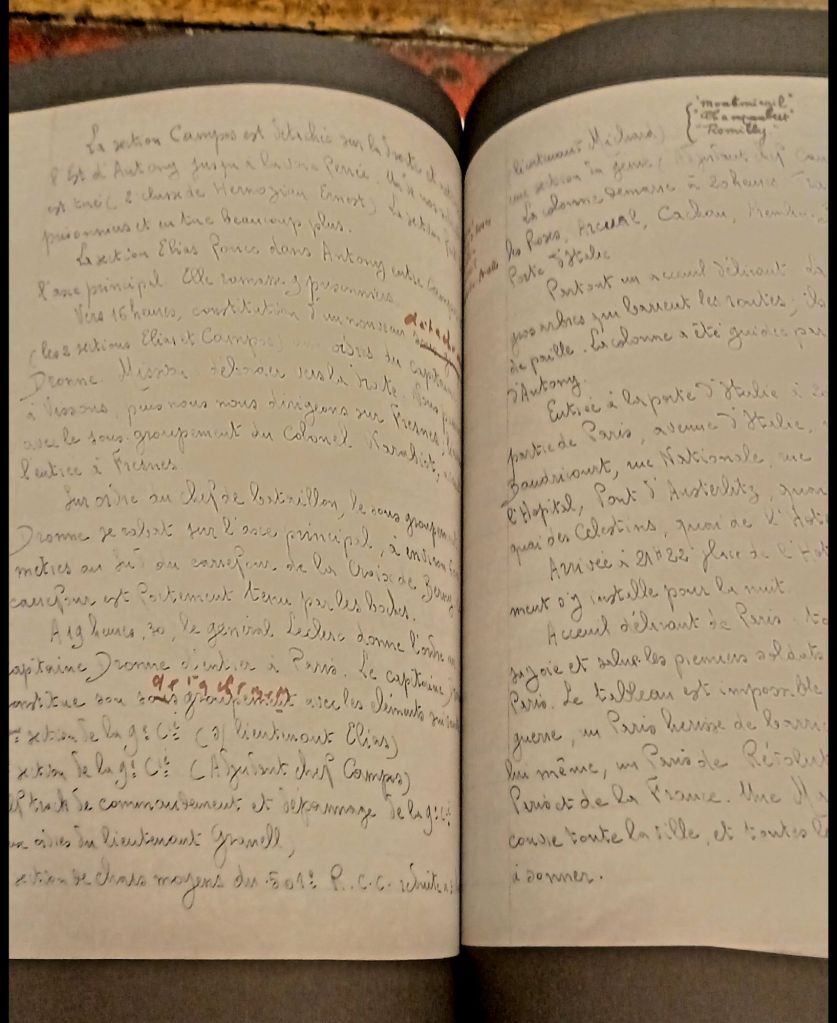 La section Campos est détachée sur la droite et
l'Est d'Antony jusqu'à la voie Ferrée. Un de nos
est tué (2e classe de Hernozian Ernest) La section fait
prisonniers et en tue beaucoup plus.
La section Elias fonce dans Antony entre Campos
l'axe principal. Elle ramasse 9 prisonniers.
Vers 16 heures, constitution d'un nouveau détache
(les 2 sections Elias et Campos) aux ordres du capitaine
Dronne. Mission: déborder vers la droite. Nous
à Vissous, puis nous nous dirigeons sur Fresnes,
avec le sous-groupement du Colonel
l'entrée à Fresnes.
Sur ordre du chef de bataillon, le sous groupement
Dronne se rabat sur l'axe principal, à environ
mètres au Sud du carrefour de la Croix de Berny
carrefour est fortement tenu par les boches.
A 19 heures,30, le général Leclerc donne l'ordre au
capitaine Dronne d'entrer à Paris. Le capitaine
constitue son sous groupement avec les éléments
section de la 9e Cie (s/lieutenant Elias)
section de la 9e Cie (Adjudant chef Campos)
track de commandement et dépannage de la 9e Cie
aux ordres du lieutenant Granell,
section de chars moyens du 501e R.C.C. réduite à
{"Montmirail"
"Champaubert"
"Romilly"
lieutenant Michard)
une section du génie (Adjudant chef
La colonne démarre à 20 heures
les Roses, Arcueil, Cachan, Kremlin-
Porte d'Italie
Partout un acceuil délirant.
gros arbres qui barrent les routes; ils
de paille. La colonne a été guidée par
d'Antony.
Entrée à la porte d'Italie à
partie de Paris, avenue d'Italie,
Baudricourt, rue Nationale, rue
l'Hopital, Pont d'Austerlitz, quai
quai des Celestins, quai de l'Hotel
Arrivée à 21H22 place de l'Hotel
ment s'y installe pour la nuit.
Acceuil délirant de Paris.
sa joie et salue les premiers soldats
Paris. Le tableau est impossible
guerre, un Paris herissé de barri
lui même, un Paris de Révolut
Paris et de la France. Une
couvre toute la ville, et toutes
à sonner.